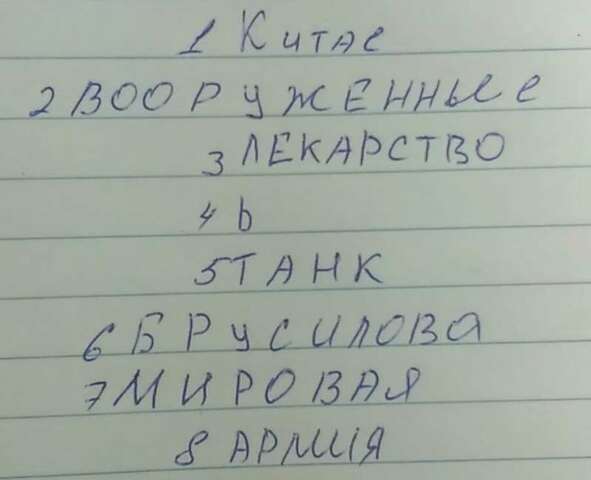 1 Китае
2 ВООРУЖЕННЫЕ
3 ЛЕКАРСТВО
4 Ь
5 ТАНК
6 БРУСИЛОВА
7 МИРОВАЯ
8 АРМІЯ